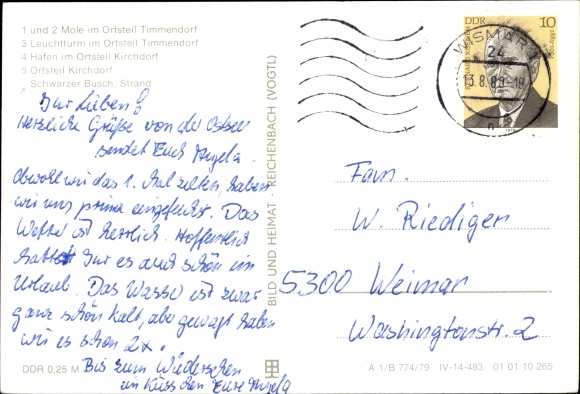 1 und 2 Mole im Ortsteil Timmendorf
3 Leuchtturm im Ortsteil Timmendorf
4 Hafen im Ortsteil Kirchdorf
5 Ortsteil Kirchdorf
Schwarzer Busch, Strand
Ihr Lieben!
Herzliche Grüße von der Ostsee
sendet Euch Angela.
Obwohl wir das 1. Mal zelten, haben
wir uns prima eingefuchst. Das
Wetter ist herrlich. Hoffentlich
habt Ihr es auch schön im
Urlaub. Das Wasser ist zwar
ganz schön kalt, aber gewagt haben
wir es schon 2x.
Bis zum Wiedersehen
ein Küsschen Eure Angela
DDR 0,25 M
BILD UND HEIMAT REICHENBACH (VOGTL)
DDR 10
WISMAR
24
13.8.80-19
Fam.
W. Riediger
5300 Weimar
Washingtonstr. 2
A 1/B 774/79 IV-14-483 01 01 10 265